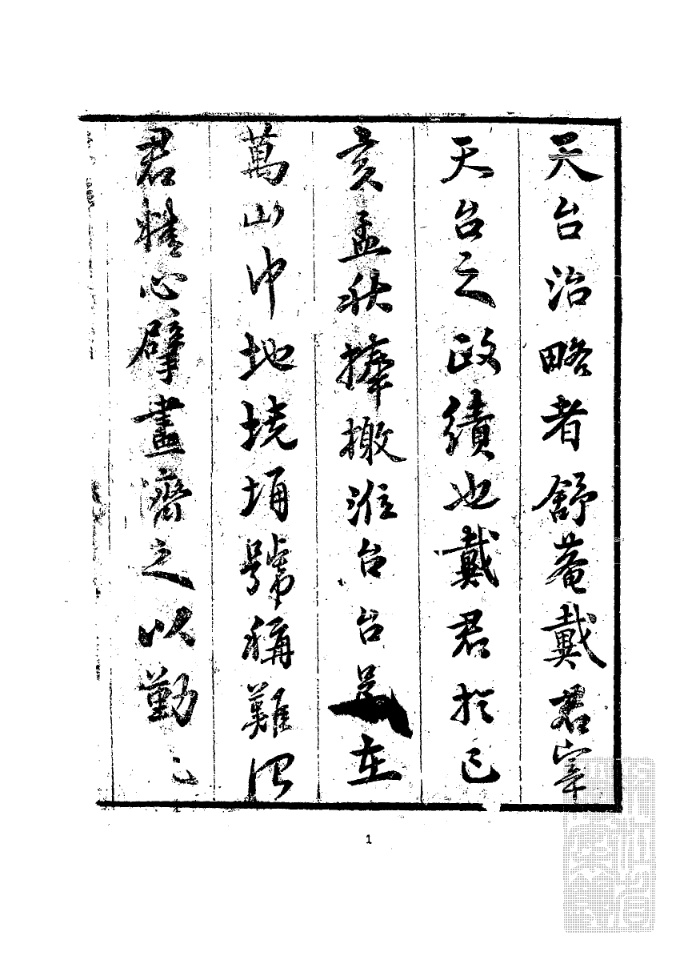 天台治略者舒菴戴君宰
天台之政績也戴君於己
亥孟秋捧檄涖台台邑在
萬山中地墝埆號稱難治
君精心擘畫濟之以勤
1